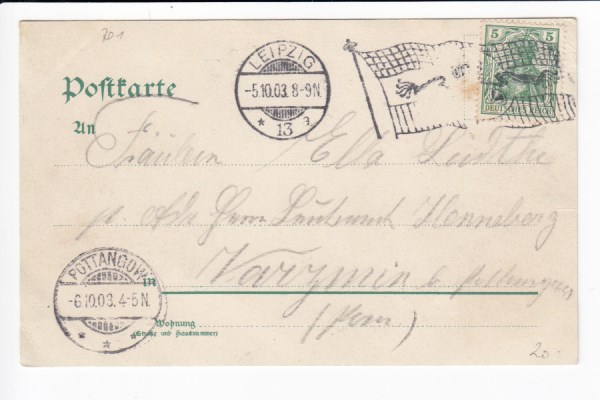 701
Postkarte
LEIPZIG
-5.10.03. 8-9N.
* 13 a
5 5
DEUTSCHES REICH
An
Fräulein Ella
p. Adr. Herrn Leutnant Henneberg
in Varzmin b.
(Pom.)
POTTANGOW
-6.10.03. 4-5N.
* * *
Wohnung
(Straße und Hausnummer)
20.-